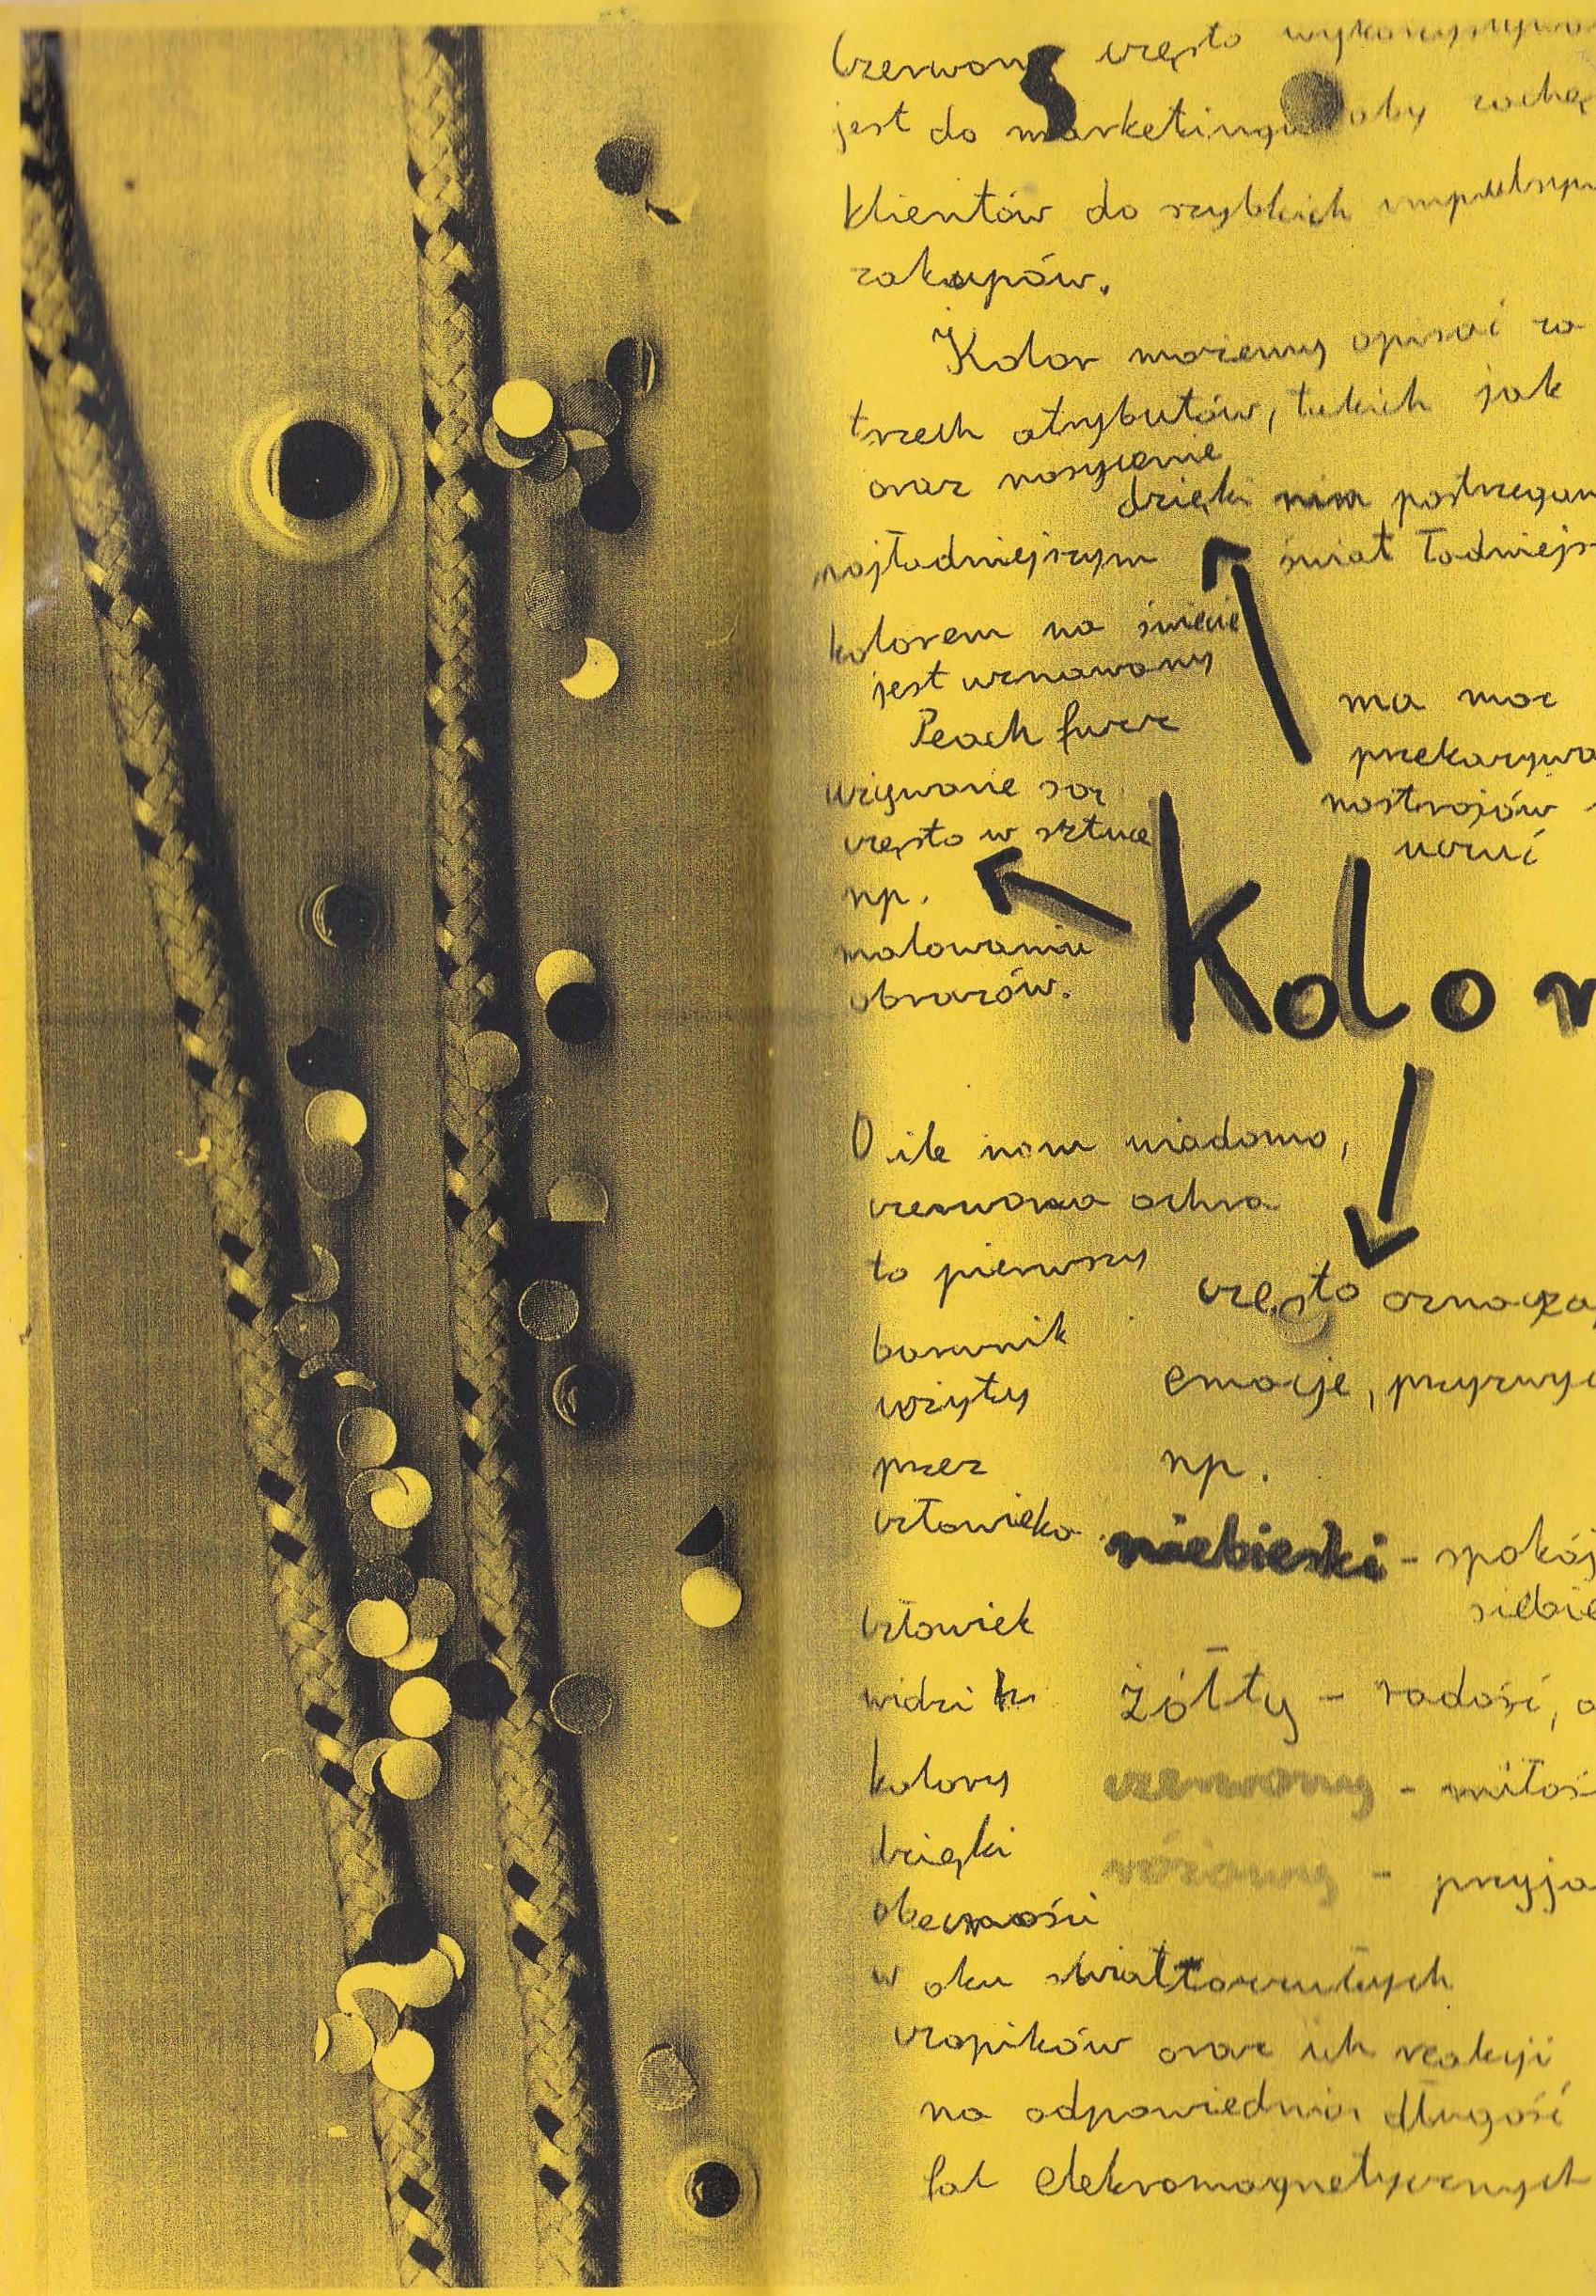 Czerwony często wykorzystywa
jest do marketingu aby zachę
klientów do szybkich impulsyw
zakupów.
Kolor możemy opisać za
trzech atrybutów, takich jak
oraz nasycenie
dzięki nim postrzegam
świat ładniejs
najładniejszym
kolorem na świecie
jest uznawany
Peach fuzz
ma moc
przekazywa
nastrojów
uczuć
używane są
często w sztuce
np.
malowaniu
obrazów.
Kolor
O ile nam wiadomo,
czerwona ochra
to pierwszy
barwnik
użyty
przez
człowieka
często oznacza
emocje, przyzwyc
np.
niebieski - spokój
siebie
żółty - radość, o
czerwony - miłoś
różowy - przyja
Człowiek
widzi
kolory
dzięki
obecności
w oku światłoczułych
czopików oraz ich reakcji
na odpowiednią długość
fal elekromagnetycznych